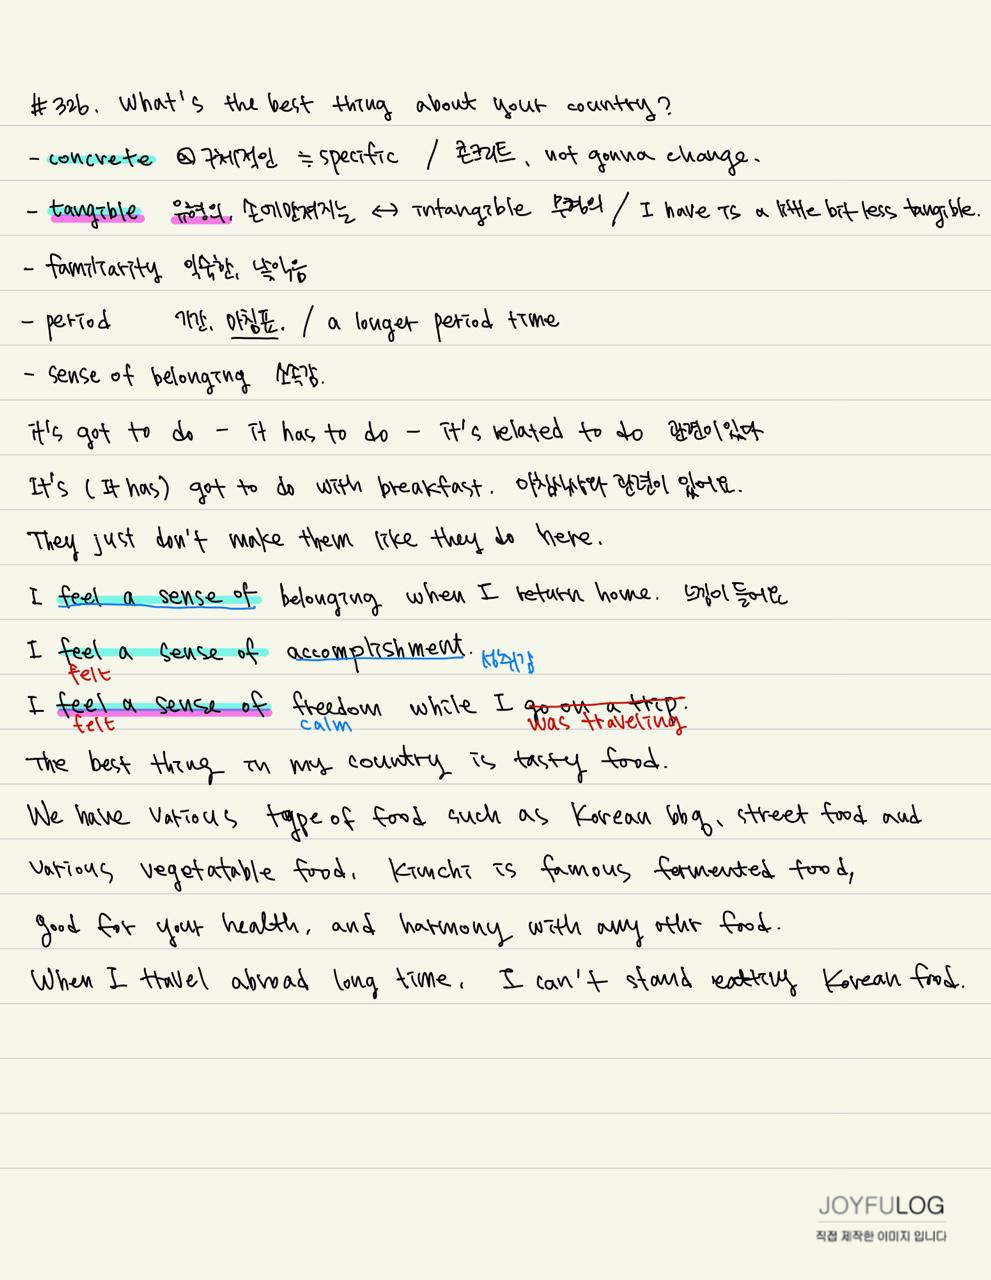 #326. What's the best thing about your country?
- concrete ⓐ 구체적인 ≒ specific / 콘크리트, not gonna change.
- tangible 유형의, 손에만져지는 ↔ intangible 무형의 / I have is a little bit less tangible.
- familiarity 익숙함, 낯익음
- period 기간, 마침표. / a longer period time
- sense of belonging 소속감.
it's got to do - it has to do - it's related to do 관련이있다
It's (It has) got to do with breakfast. 아침식사와 관련이 있어요.
They just don't make them like they do here.
I feel a sense of belonging when I return home. 느낌이 들어요
I feel a sense of accomplishment. 성취감
felt
I feel a sense of freedom while I go on a trip.
felt calm was traveling
The best thing in my country is tasty food.
We have various type of food such as Korean bbq, street food and
various vegetatable food. Kimchi is famous fermented food,
good for your health, and harmony with any othr food.
When I travel abroad long time, I can't stand eatting Korean food.
JOYFULOG
직접 제작한 이미지 입니다